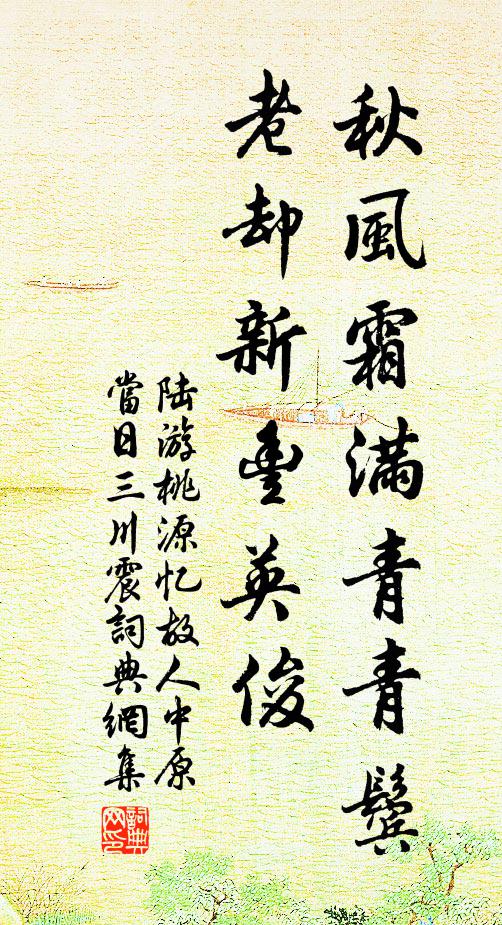 秋風霜满青青鬓
老却新豊英俊
陆游桃源忆故人中原
當日三川震詞典網集
詞典
网印